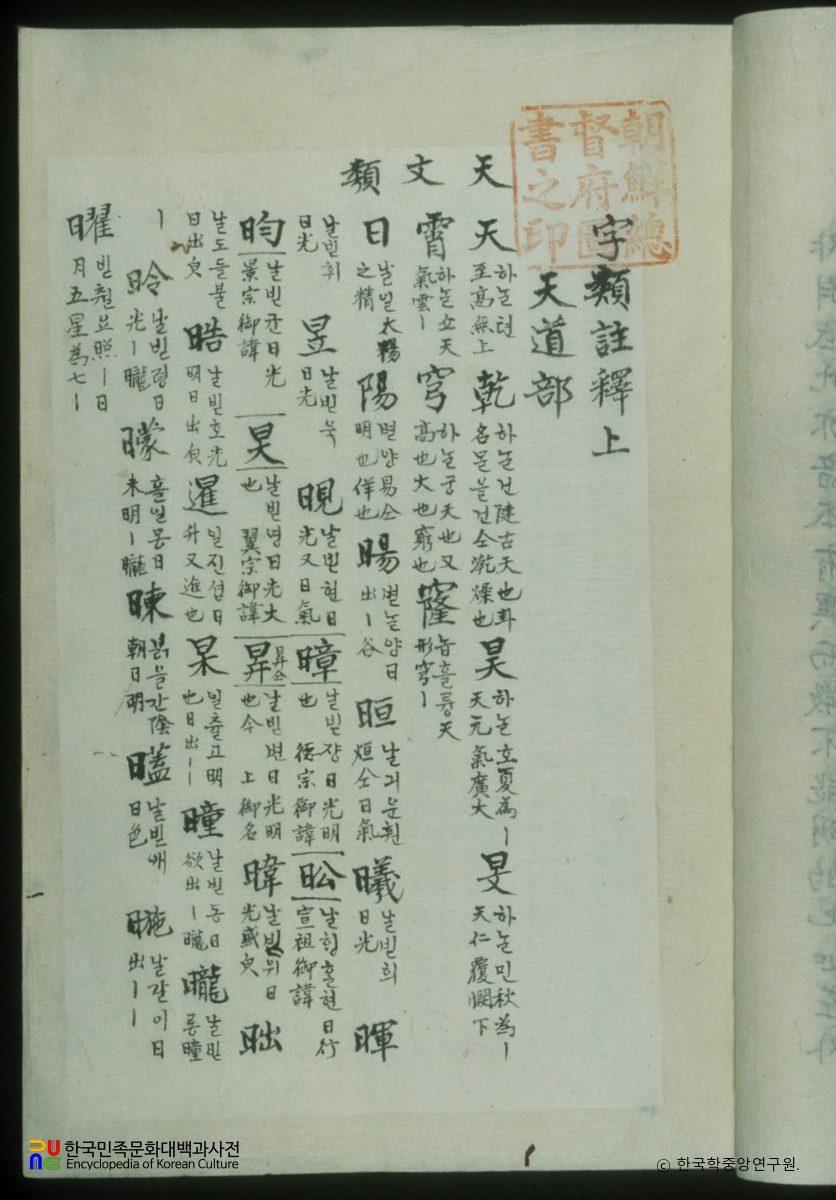 朝鮮總
督府圖
書之印
字類註釋上
天道部
天文類
天 하ᄂᆞᆯ텬 至高無上 乾 하ᄂᆞᆯ건 健古天也卦名ᄆᆞᄅᆞᆯ건 仝漧燥也 昊 하ᄂᆞᆯ호 夏為ㅣ天元氣廣大 旻 하ᄂᆞᆯ민 秋為ㅣ天仁覆閔下
霄 하ᄂᆞᆯ쇼 天氣雲ㅣ 穹 하ᄂᆞᆯ궁 天也又高也大也窮也 窿 놉흘륭 天形穹ㅣ
日 날일 太陽之精 陽 볃양 昜仝明也佯也 暘 볃ᄂᆞᆯ양 日出ㅣ谷 晅 날긔운훤 烜仝日氣 曦 날빗희 日光 暉
날빗휘 日光 昱 날빗욱 日光 晛 날빗현 日光又日氣 暲 날빗쟝 日光明也 德宗御諱 昖 日行 宣祖御諱
昀 날빗균 日光 景宗御諱 旲 날빗 日光大也 翼宗御諱 昪 昇仝 날빗변 日光明也今上御名 暐 날빗위 日光盛皃 昢
날도들불 日出皃 晧 날빗호 光明日出皃 暹 일진셥 日升又進也 杲 일츌고 明也日出ㅣㅣ 曈 날빗동 日欲出ㅣ曨 曨 날빗롱 曈
ㅣ 昤 날빗령 日光ㅣ曨 曚 흘일몽 日未明ㅣ曨 暕 붉을간 陰朝日明 날빗애 日色 날갈이 日出ㅣㅣ
曜 빗최일요 照ㅣ日月五星為七ㅣ
한국민족문화대백과사전
Encyclopedia of Korean Culture
ⓒ 한국학중앙연구원.